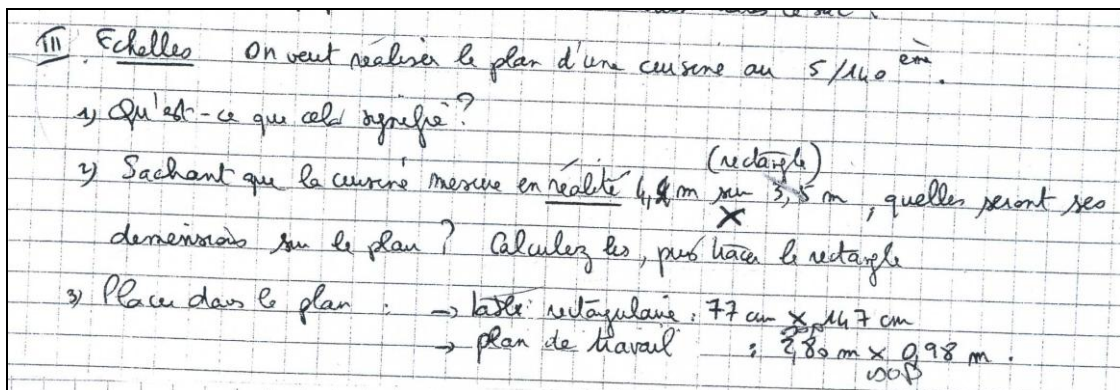 III. Echelles On veut réaliser le plan d'une cuisine au 5/140 ème.
1) Qu'est-ce que cela signifie ?
(rectangle)
2) Sachant que la cuisine mesure en réalité 4,2 m sur 3,5 m, quelles seront ses
X
dimensions sur le plan ? Calculez les, puis tracer le rectangle
3) Placer dans le plan : → table rectangulaire : 77 cm X 147 cm
→ plan de travail : 2,80 m X 0,98 m.